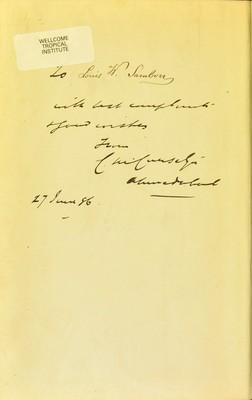 WELLCOME
TROPICAL
INSTITUTE
To Louis W. Sambon
with best compliments
& good wishes
from
Ahmedabad
27 June 96